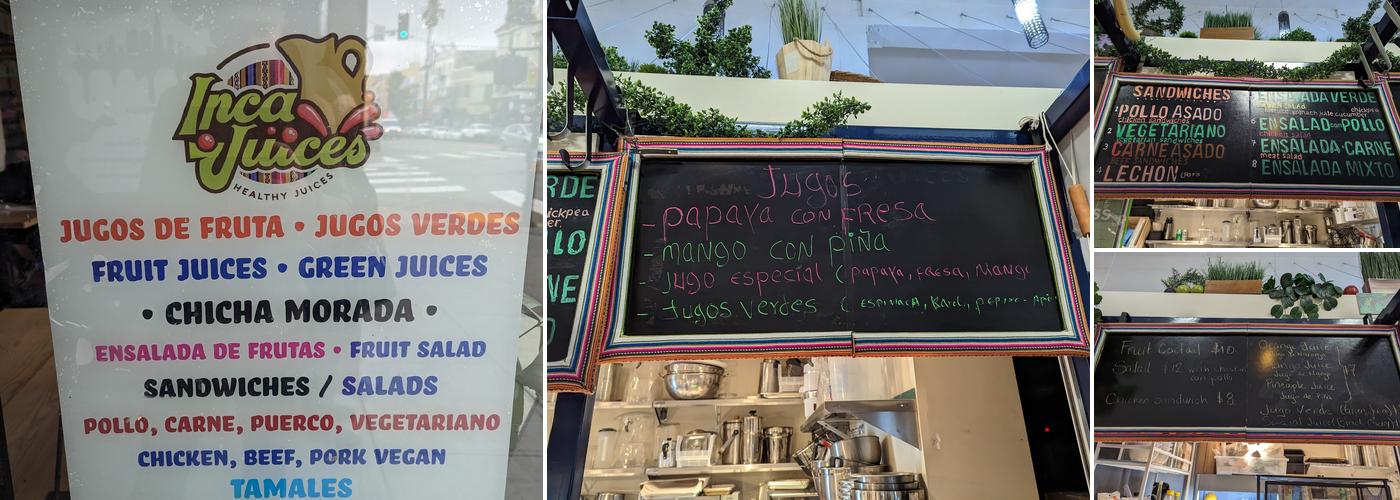 Inca
Juices
HEALTHY JUICES
JUGOS DE FRUTA • JUGOS VERDES
FRUIT JUICES • GREEN JUICES
• CHICHA MORADA •
ENSALADA DE FRUTAS • FRUIT SALAD
SANDWICHES / SALADS
POLLO, CARNE, PUERCO, VEGETARIANO
CHICKEN, BEEF, PORK VEGAN
TAMALES
RDE
ickpea
er.
LO
NE
O
Jugos
- papaya con FRESA
- mango con piña
- Jugo especial ( papaya, FRESA, Mango
- Jugos verdes ( ESPINACA,
SANDWICHES
1 POLLO ASADO
chicken sandwiches
2 VEGETARIANO
vegetarian sandwiches
3 CARNE ASADO
4 LECHON
ENSALADA VERDE
6 ENSALADA con POLLO
chicken salad
7 ENSALADA-CARNE
meat salad
8 ENSALADA MIXTO
Fruit Cocktail $10.
Salad $12 with chicken
con pollo
Chicken sandwich $8
Orange Juice
Jugo de Naranja
Mango Juice
Jugo de Mango
Pineapple Juice
Jugo de Piña
7
Jugo Verde (Green Juice)
Special Juice